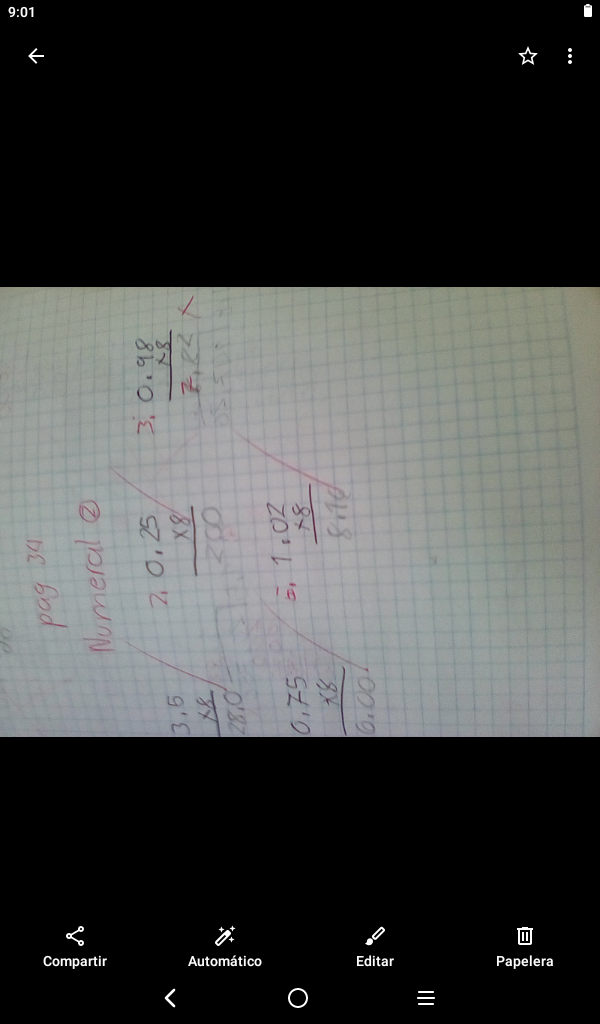 9:01
pag 34
Numeral ②
3.5
x8
28.0
2. 0.25
x8
2.00
3. 0.98
x8
0.75
x8
6.00
5. 1.02
x8
8.16
Compartir
Automático
Editar
Papelera